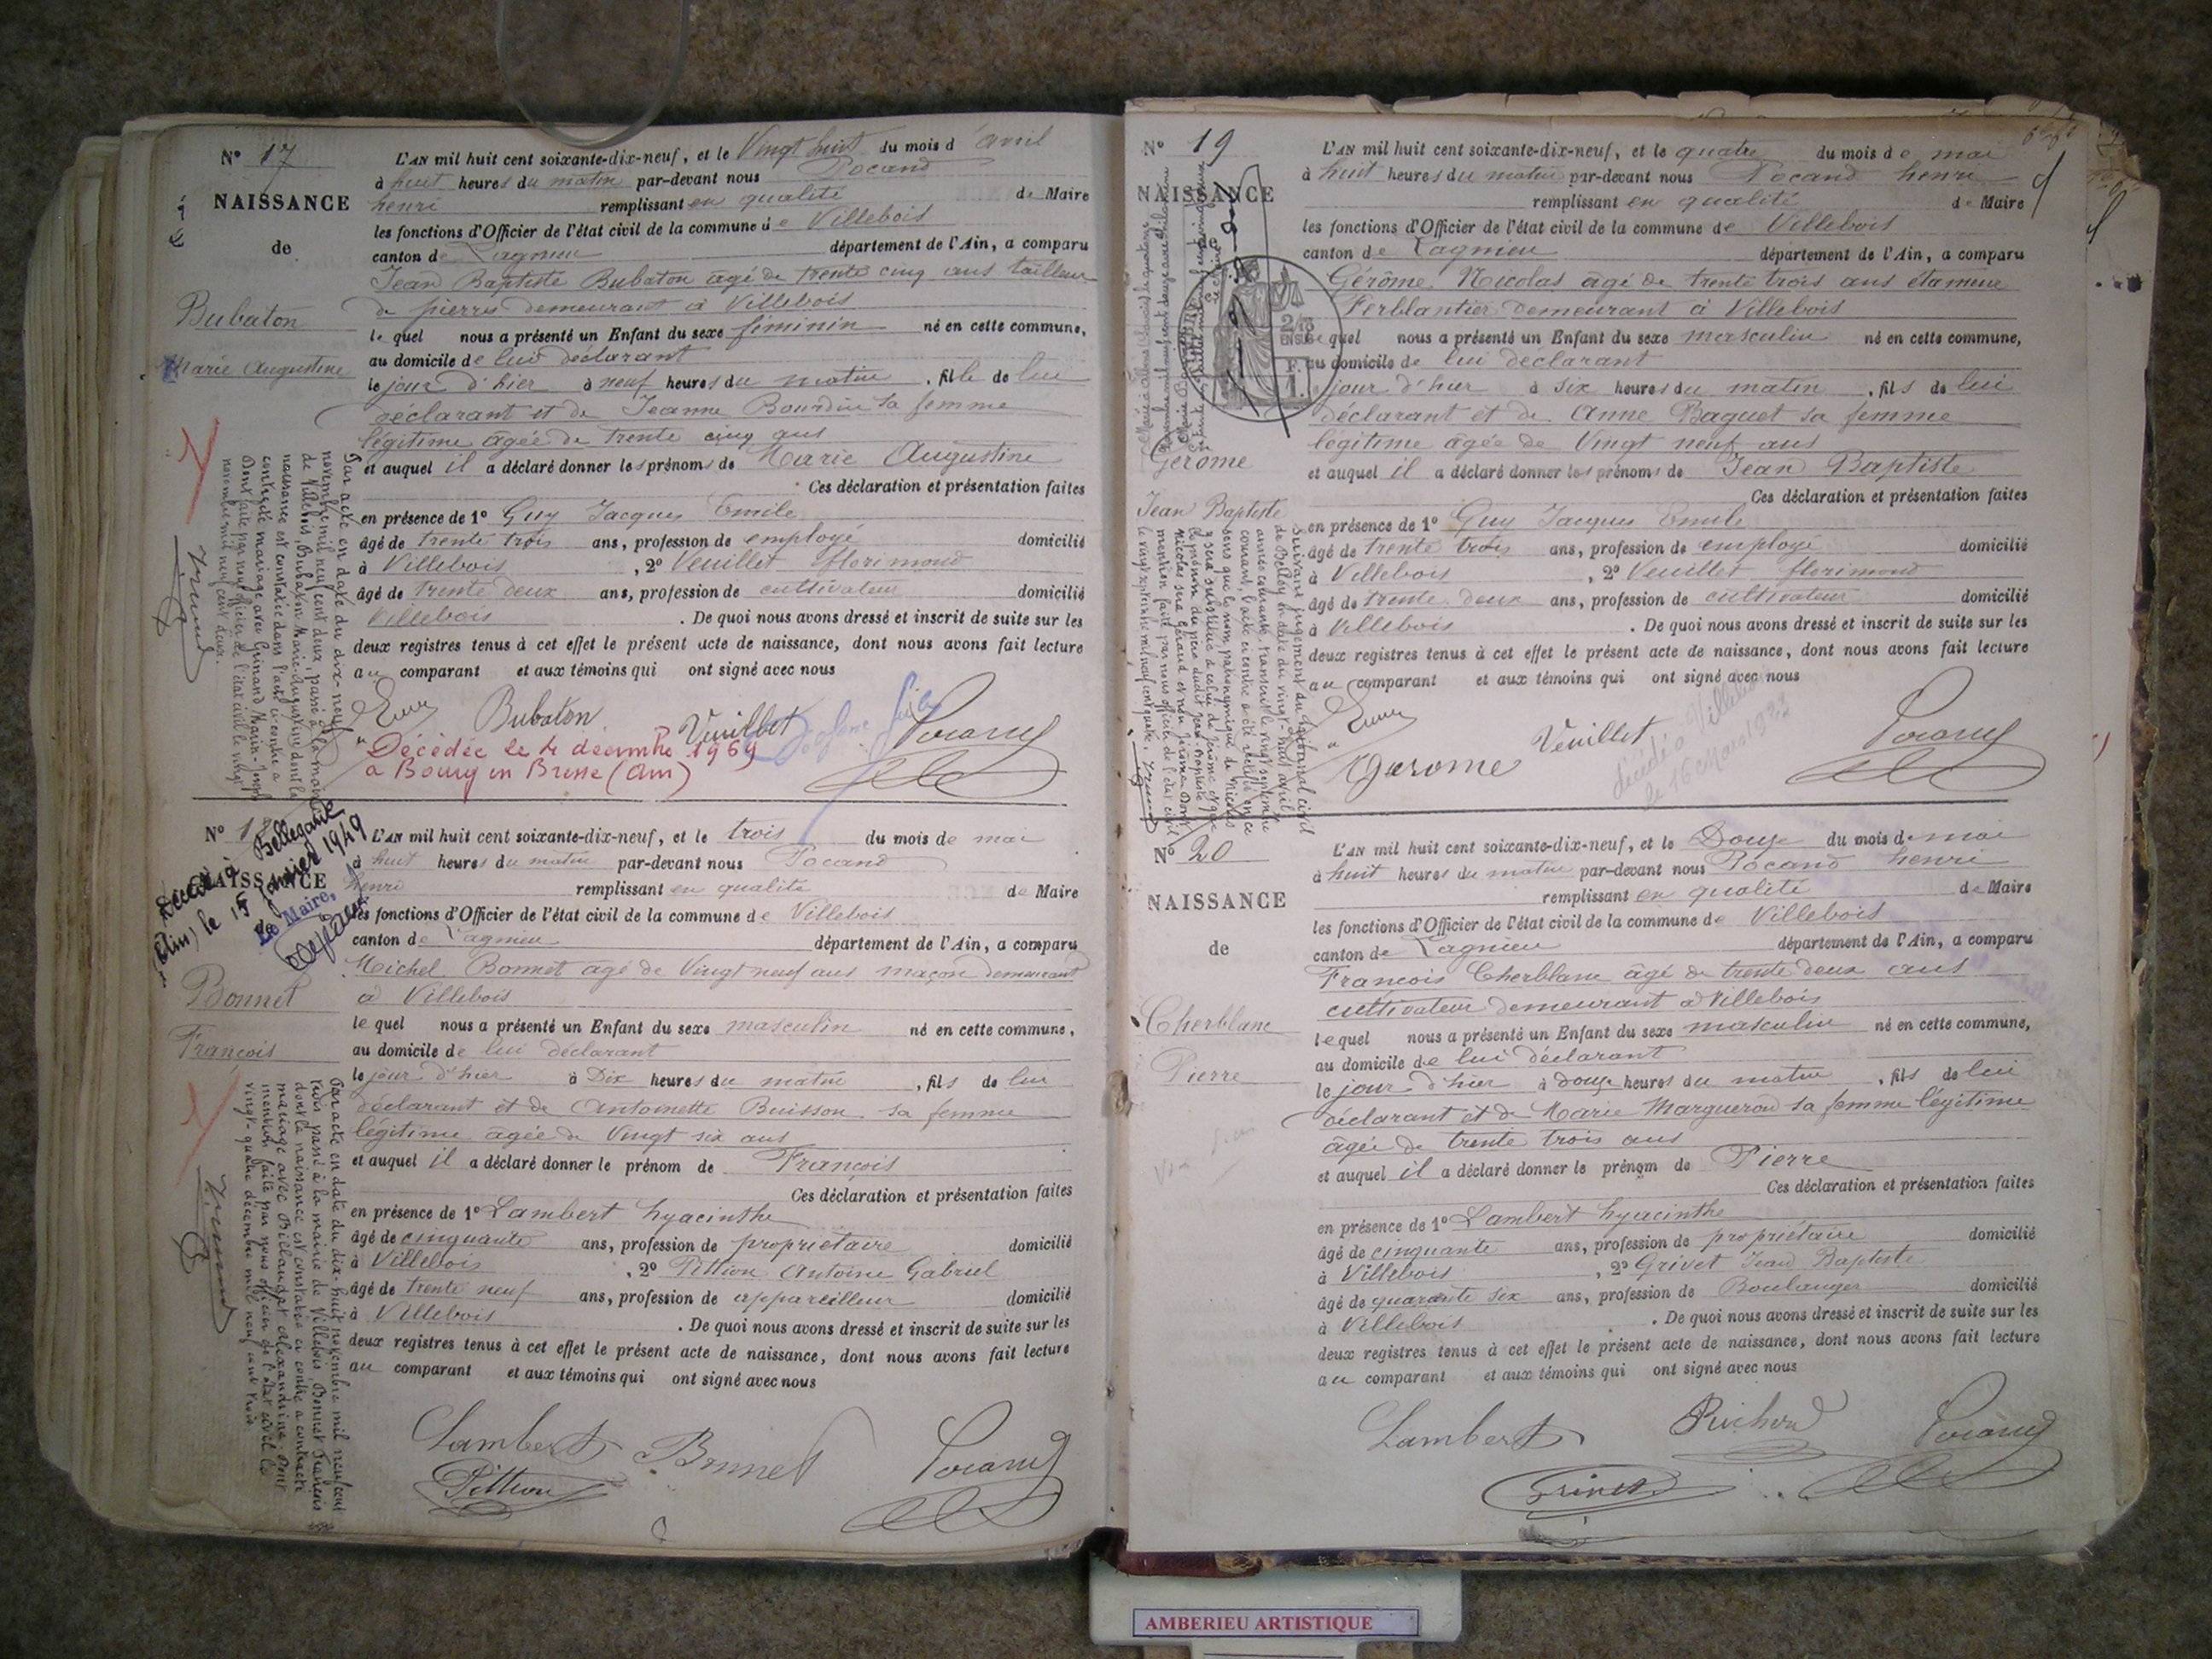 N° 17
NAISSANCE
de
Bubaton
Marie Augustine
L'AN mil huit cent soixante-dix-neuf, et le Vingt huit du mois d'avril
à huit heures du matin par-devant nous Pocand
henri remplissant en qualité de Maire
les fonctions d'Officier de l'état civil de la commune de Villebois
canton de Lagnieu département de l'Ain, a comparu
Jean Baptiste Bubaton âgé de trente cinq ans tailleur
de pierres demeurant à Villebois
le quel nous a présenté un Enfant du sexe féminin né en cette commune,
au domicile de lui déclarant
le jour d'hier à neuf heures du matin, fille de lui
déclarant et de Jeanne Bourdin sa femme
légitime âgée de trente cinq ans
et auquel il a déclaré donner les prénoms de Marie Augustine
Ces déclaration et présentation faites
en présence de 1° Guy Jacques Emile
âgé de trente trois ans, profession de employé domicilié
à Villebois, 2° Veuillet florimond
âgé de trente deux ans, profession de cultivateur domicilié
Villebois. De quoi nous avons dressé et inscrit de suite sur les
deux registres tenus à cet effet le présent acte de naissance, dont nous avons fait lecture
au comparant et aux témoins qui ont signé avec nous
Bubaton Veuillet
Décédée le 4 décembre 1969
a Bourg en Bresse (Ain)
Par acte en date du dix-neuf
novembre mil neuf cent deux, passé à la mairie
de Villebois, Bubaton Marie-Augustine dont la
naissance est constatée dans l'acte ci-contre a
contracté mariage avec Guinand Marin-Joseph
Dont faite par nous officier de l'état civil le vingt
novembre mil neuf cent deux.
N° 18
NAISSANCE
Décédé à Bellegarde
(Ain) le 15 Janvier 1949
Le Maire,
Bonnet
François
L'AN mil huit cent soixante-dix-neuf, et le trois du mois de mai
à huit heures du matin par-devant nous Pocand
henri remplissant en qualité de Maire
les fonctions d'Officier de l'état civil de la commune de Villebois
canton de Lagnieu département de l'Ain, a comparu
Michel Bonnet âgé de Vingt neuf ans maçon demeurant
à Villebois
le quel nous a présenté un Enfant du sexe masculin né en cette commune,
au domicile de lui déclarant
le jour d'hier à Dix heures du matin, fils de lui
déclarant et de Antoinette Buisson sa femme
légitime âgée de Vingt six ans
et auquel il a déclaré donner le prénom de François
Ces déclaration et présentation faites
en présence de 1° Lambert hyacinthe
âgé de cinquante ans, profession de propriétaire domicilié
à Villebois, 2° Pittion Antoine Gabriel
âgé de trente neuf ans, profession de appareilleur domicilié
à Villebois. De quoi nous avons dressé et inscrit de suite sur les
deux registres tenus à cet effet le présent acte de naissance, dont nous avons fait lecture
au comparant et aux témoins qui ont signé avec nous
Lambert Bonnet
Pittion
Par acte en date du dix-huit novembre mil neuf cent
trois passé à la mairie de Villebois, Bonnet François
dont la naissance est constatée ci contre a contracté
mariage avec Billaudot Alexandrine. Dont
mention faite par nous officier de l'état civil le
vingt-quatre décembre mil neuf cent trois
N° 19
NAISSANCE
Gérome
Jean Baptiste
L'AN mil huit cent soixante-dix-neuf, et le quatre du mois de mai
à huit heures du matin par-devant nous Pocand henri
remplissant en qualité de Maire
les fonctions d'Officier de l'état civil de la commune de Villebois
canton de Lagnieu département de l'Ain, a comparu
Gérôme Nicolas âgé de trente trois ans étameur
Ferblantier demeurant à Villebois
le quel nous a présenté un Enfant du sexe masculin né en cette commune,
au domicile de lui déclarant
jour d'hier à six heures du matin, fils de lui
déclarant et de Anne Baguet sa femme
légitime âgée de Vingt neuf ans
et auquel il a déclaré donner les prénoms de Jean Baptiste
Ces déclaration et présentation faites
en présence de 1° Guy Jacques Emile
âgé de trente trois ans, profession de employé domicilié
à Villebois, 2° Veuillet florimond
âgé de trente deux ans, profession de cultivateur domicilié
à Villebois. De quoi nous avons dressé et inscrit de suite sur les
deux registres tenus à cet effet le présent acte de naissance, dont nous avons fait lecture
au comparant et aux témoins qui ont signé avec nous
Veuillet
Gerome
décédé à Villebois
le 16 Mars
Suivant jugement du Tribunal civil
de Belley en date du vingt-huit avril
N° 20
NAISSANCE
de
Cherblanc
Pierre
L'AN mil huit cent soixante-dix-neuf, et le Douze du mois de mai
à huit heures du matin par-devant nous Pocand henri
remplissant en qualité de Maire
les fonctions d'Officier de l'état civil de la commune de Villebois
canton de Lagnieu département de l'Ain, a comparu
François Cherblanc âgé de trente deux ans
cultivateur demeurant à Villebois
lequel nous a présenté un Enfant du sexe masculin né en cette commune,
au domicile de lui déclarant
le jour d'hier à douze heures du matin, fils de lui
déclarant et de Marie Margueron sa femme légitime
âgée de trente trois ans
et auquel il a déclaré donner le prénom de Pierre
Ces déclaration et présentation faites
en présence de 1° Lambert hyacinthe
âgé de cinquante ans, profession de propriétaire domicilié
à Villebois, 2° Grivet Jean Baptiste
âgé de quarante six ans, profession de Boulanger domicilié
à Villebois. De quoi nous avons dressé et inscrit de suite sur les
deux registres tenus à cet effet le présent acte de naissance, dont nous avons fait lecture
au comparant et aux témoins qui ont signé avec nous
Lambert
Grivet
AMBERIEU ARTISTIQUE